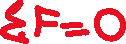 ΣF=0